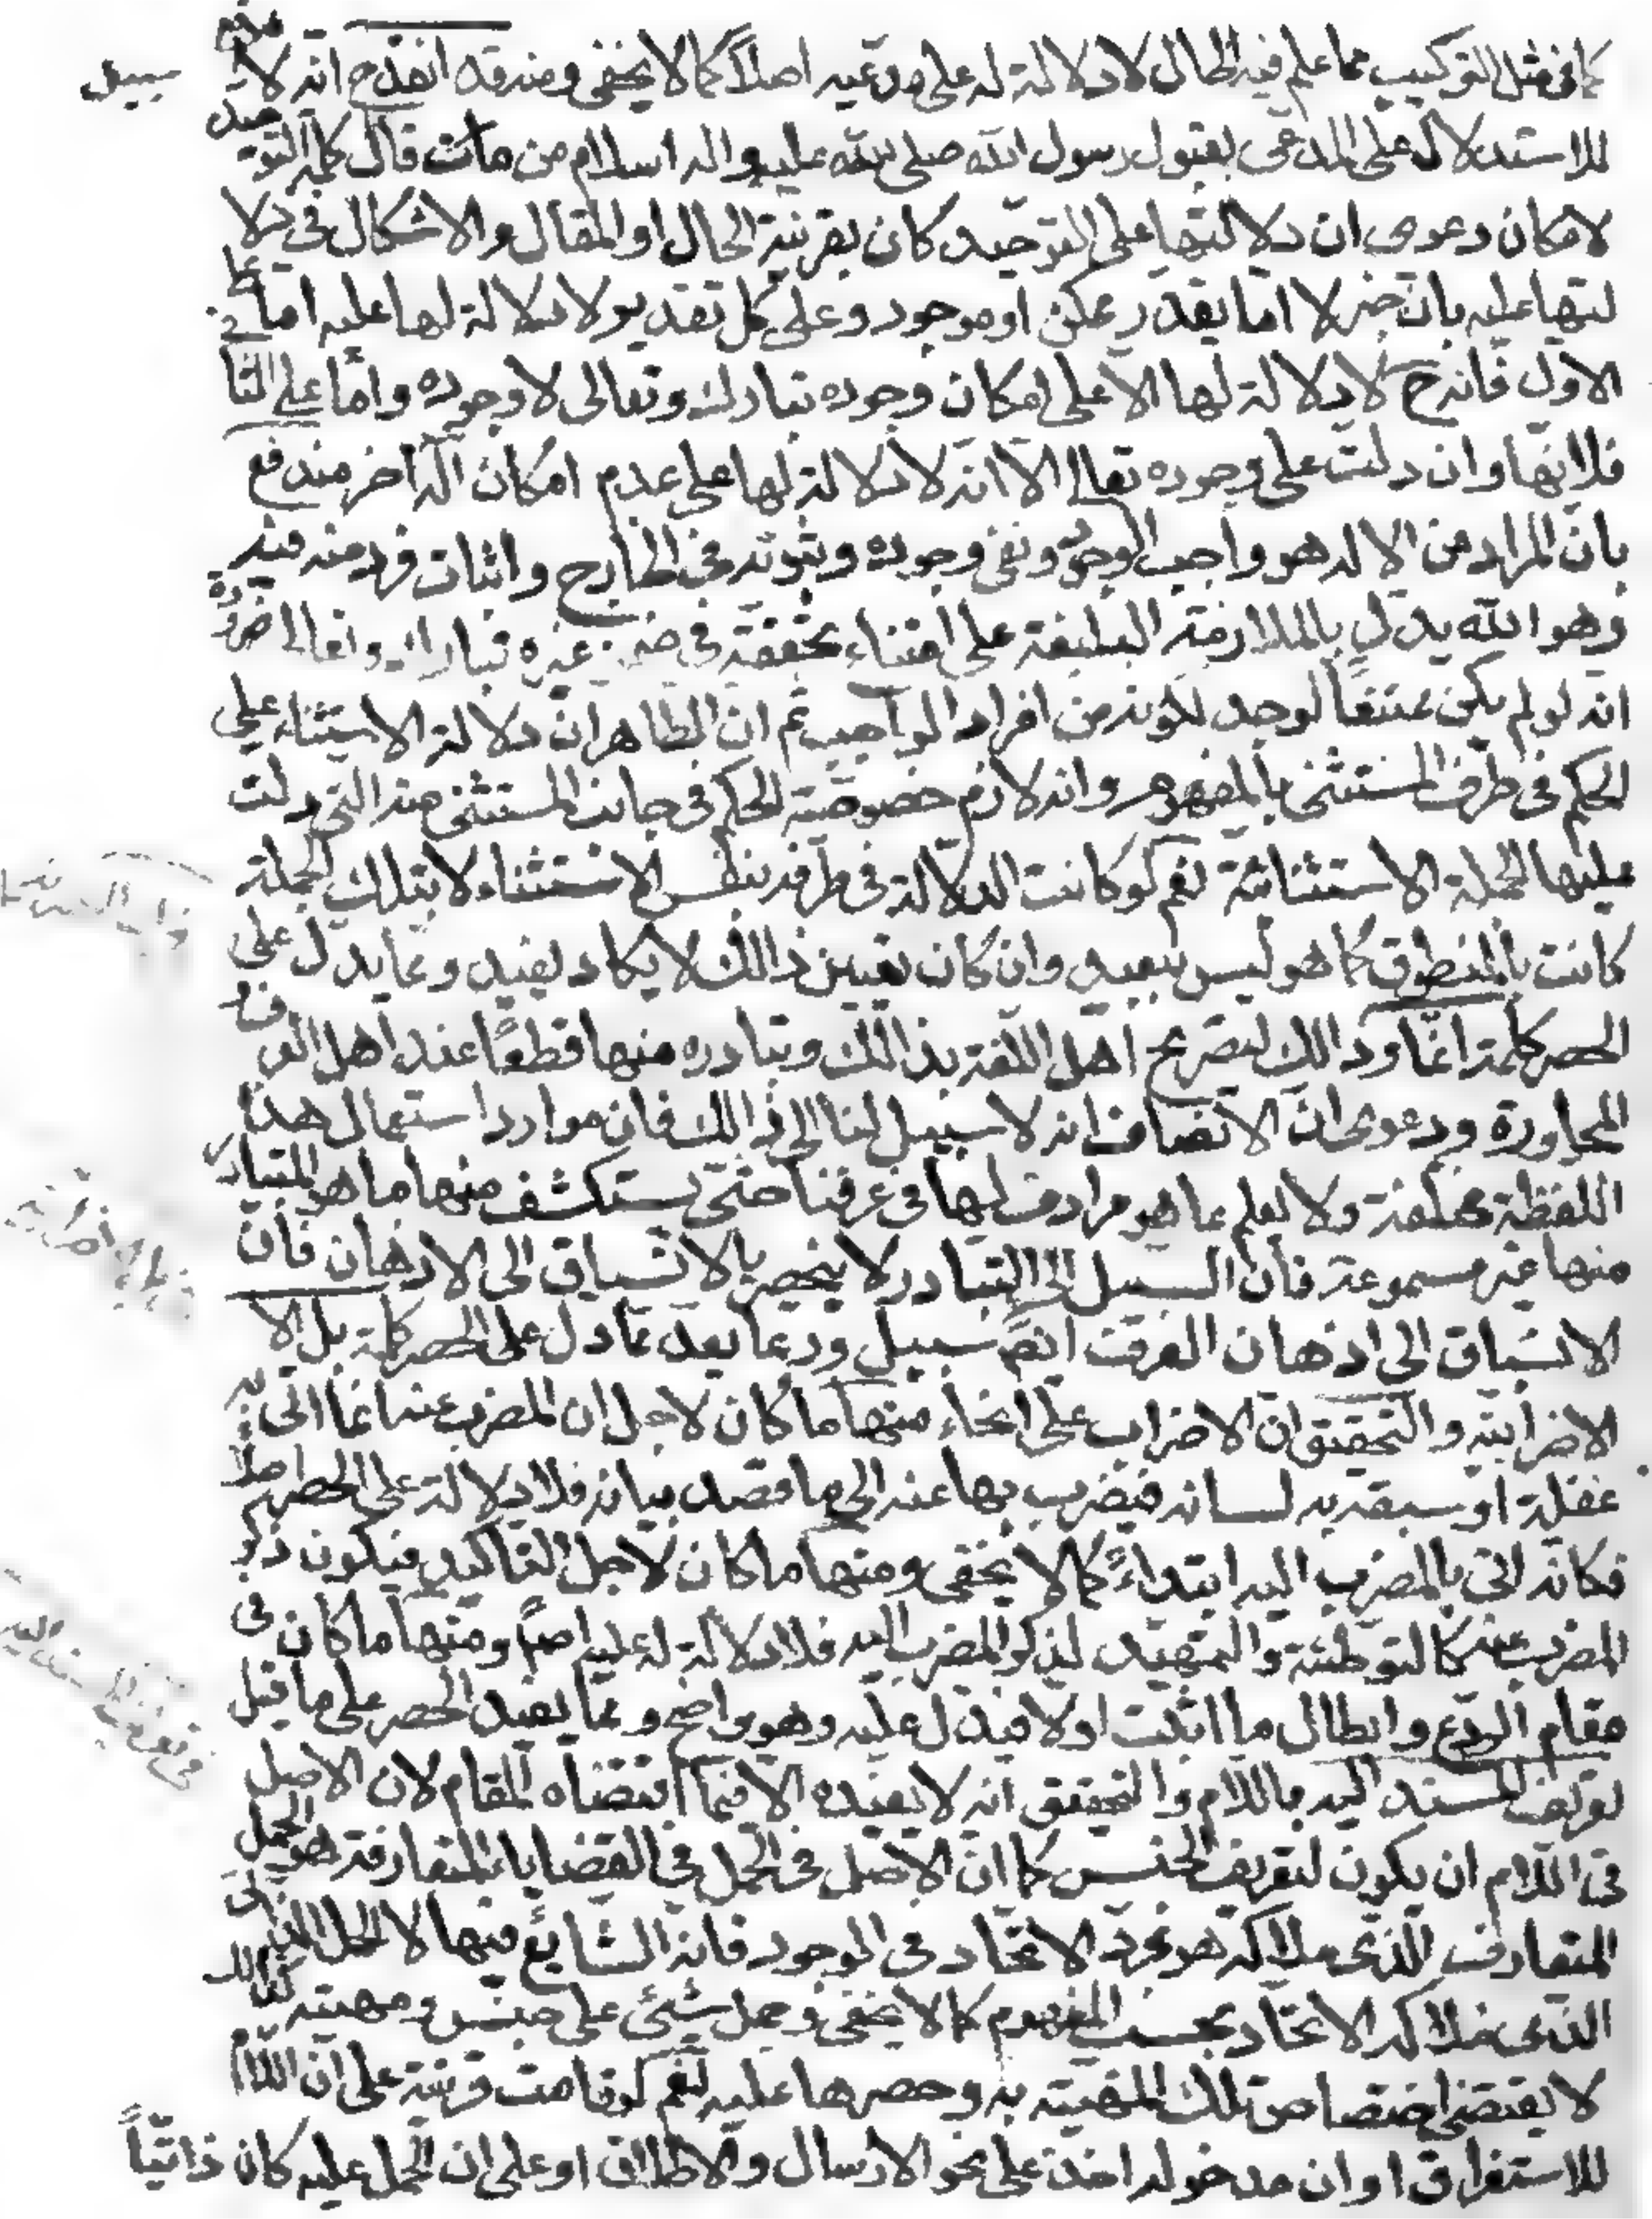 كما فى مثل التركيب مما علم فيه الحال لا دلالة له على مدعيه اصلاً كما لا يخفى ومنه قد انقدح انه لا موقع
سبيل
للاستدلال على المدعى بقبول رسول الله صلى الله عليه واله اسلام من مات قال كلمة التوحيد
لامكان دعوى ان دلالتها على التوحيد كان بقرينة الحال او المقال والاشكال فى دلا
لتها عليه بان خبر لا اما يقدر ممكن او موجود وعلى كل تقدير لا دلالة لها عليه اما على
الاول فانه ح لا دلالة لها الا على امكان وجوده تبارك وتعالى لا وجوده واما على الثا
فلانها وان دلت على وجوده تعالى الا انه لا دلالة لها على عدم امكان اله اخر مندفع
بان المراد من الاله هو واجب الوجود ونفى وجوده وثبوته فى الخارج واثبات فرد منه فيه
وهو الله يدل بالملازمة البينة على امتناع تحققه فى ضمن غيره تبارك وتعالى ضرورة
انه لو لم يكن ممتنعاً لوجد لكونه من افراد الواجب ثم ان الظاهر ان دلالة الاستثناء على
الحكم فى طرف المستثنى بالمفهوم وانه لازم خصوصية الحكم فى جانب المستثنى منه التى دلت
عليها الجملة الاستثنائية نعم لو كانت الدلالة فى طرفه بنفس الاستثناء لا بتلك الجملة
كانت بالمنطوق كما هو ليس ببعيد وان كان تعيين ذالك لا يكاد يفيد ومما يدل على
الحصر كلمة انما وذالك لتصريح اهل اللغة بذالك وتبادره منها قطعًا عند اهل العرف و
المحاورة ودعوى ان الانصاف انه لا سبيل لنا الى ذالك فان موارد استعمال هذا
اللفظة مختلفة ولا يعلم بما هو مرادف لها فى عرفنا حتى يستكشف منها ما هو المتبادر
منها غير مسموعة فان السبيل الى التبادر لا ينحصر بالانسباق الى الاذهان فان
الانسباق الى اذهان العرف ايضً سبيل وربما يعد مما دل على الحصر كلمة بل الا
الاضرابية والتحقيق ان الاضراب على انحاء منها ما كان لاجل ان المضرب عنه انما اتى به
غفلة او سبقه به لسانه فيضرب بها عنه الى ما قصد بيانه فلا دلالة على الحصر اصلا
فكانه اتى بالمضرب اليه ابتداءً كما لا يخفى ومنها ما كان لاجل التاكيد فيكون ذكر
المضرب عنه كالتوطئة والتمهيد لذكر المضرب اليه فلا دلالة له عليه اصلًا ومنها ما كان فى
مقام الردع وابطال ما اثبت اولا فيدل عليه وهو واضح ومما يفيد الحصر على ما قيل
تعريف المسند اليه باللام والتحقيق انه لا يفيده الا فيما اقتضاه المقام لان الاصل
فى اللام ان يكون لتعريف الجنس كما ان الاصل فى الحمل فى القضايا المتعارفة هو الحمل
المتعارف الذى ملاكه هو مجرد الاتحاد فى الوجود فانه الشايع فيها لا الحمل الذاتى
الذى ملاكه الاتحاد بحسب المفهوم كما لا يخفى وحمل شيئ على جنس ومهية كذالك
لا يقتضى اختصاص تلك المهية به وحصرها عليه نعم لو قامت قرينة على ان اللام
للاستغراق او ان مدخوله اخذ على نحو الارسال والاطلاق او على ان الحمل عليه كان ذاتيّاً